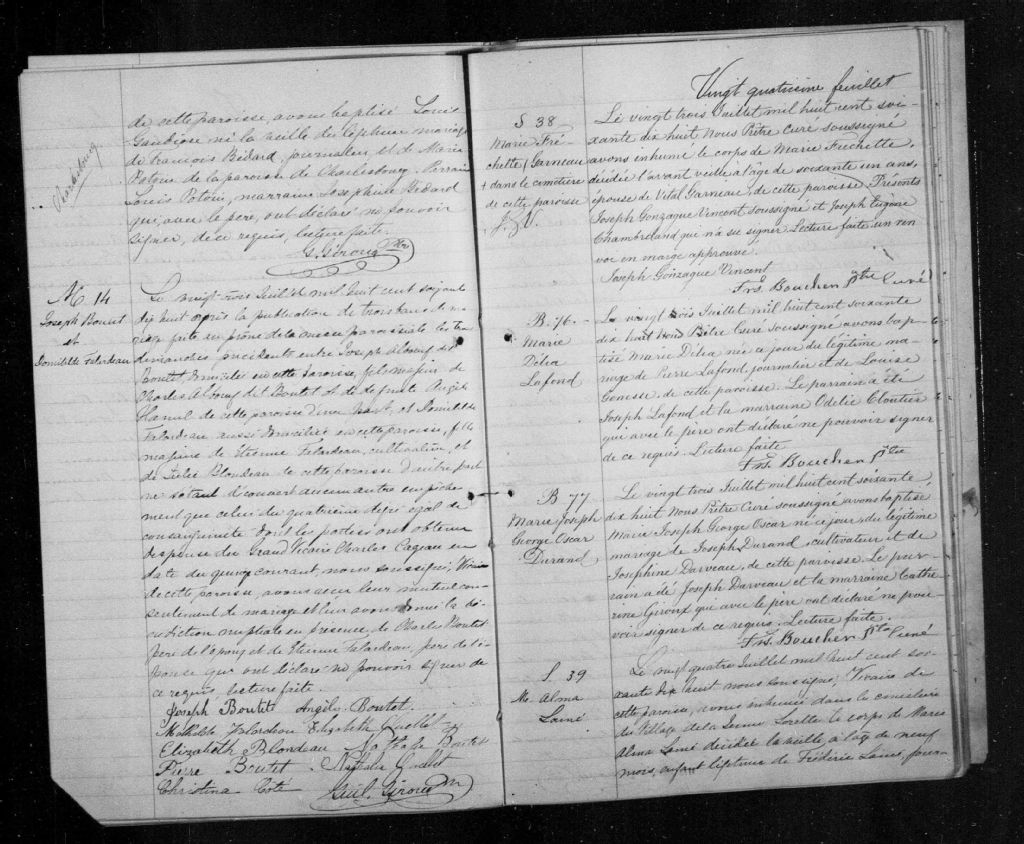 de cette paroisse, avons baptisé Louis
né la veille du légitime mariage
de François Bédard, journalier et de Marie
Potvin de la paroisse de Charlesbourg. Parrain
Louis Potvin, marraine Josephine Bédard
qui, avec le père, ont déclaré ne pouvoir
signer, de ce requis, lecture faite.
G. Giroux Ptre
Charlesbourg
M 14
Joseph Boutet
et
Domitilde Falardeau
Le vingt-trois Juillet mil huit cent soixante
dix huit après la publication de trois bans de ma-
riage faite au prône de la messe paroissiale les trois
dimanches précédents entre Joseph dit
Boutet, domicilié en cette paroisse, fils majeur de
Charles dit Boutet et de défunte Angèle
Hamel de cette paroisse d'une part, et Domitilde
Falardeau aussi domiciliée en cette paroisse, fille
majeure de Etienne Falardeau, cultivateur, et
de Julie Blondeau de cette paroisse d'autre part
ne s'étant découvert aucun autre empêche-
ment que celui du quatrième degré égal de
consanguinité dont les parties ont obtenu
dispense du Grand Vicaire Charles Cazeau en
date du quinze courant, nous soussigné, Vicaire
de cette paroisse, avons reçu leur mutuel con-
sentement de mariage et leur avons donné la bé-
nédiction nuptiale en présence de Charles Boutet
père de l'époux et de Etienne Falardeau, père de l'é-
pouse qui ont déclaré ne pouvoir signer de
ce requis, lecture faite.
Joseph Boutet Angèle Boutet
Mathilde Falardeau Elizabeth
Elizabeth Blondeau Boutet
Pierre Boutet Nathalie
Christina Coté Guil. Giroux Ptre
Vingt quatrième feuillet
S 38
Marie Fré-
chette (Garneau
+ dans le cimetière
de cette paroisse
J. G. V.
Le vingt trois Juillet mil huit cent soi-
xante dix huit Nous Prêtre Curé soussigné
avons inhumé le corps de Marie Fréchette,
décédée l'avant veille à l'âge de soixante un ans,
épouse de Vital Garneau, de cette paroisse. Présents
Joseph Gonzague Vincent soussigné et Joseph Eugène
Chambreland qui n'a su signer. Lecture faite un ren
voi en marge approuvé.
Joseph Gonzague Vincent
Frs. Boucher Ptre Curé
B. 76
Marie
Délia
Lafond
Le vingt trois Juillet mil huit cent soixante
dix huit Nous Prêtre Curé soussigné avons bap-
tisé Marie Délia née ce jour du légitime ma-
riage de Pierre Lafond, journalier et de Louise
Genesse, de cette paroisse. Le parrain a été
Joseph Lafond et la marraine Odélie Cloutier
qui avec le père ont déclaré ne pouvoir signer
de ce requis. Lecture faite
Frs. Boucher Ptre
B 77
Marie Joseph
George Oscar
Durand
Le vingt trois Juillet mil huit cent soixante
dix huit Nous Prêtre Curé soussigné avons baptisé
Marie Joseph George Oscar né ce jour du légitime
mariage de Joseph Durand, cultivateur et de
Josephine Darveau, de cette paroisse. Le par-
rain a été Joseph Darveau et la marraine Cathe
rine Giroux qui avec le père ont déclaré ne pou-
voir signer de ce requis. Lecture faite.
Frs. Boucher Ptre Curé
S 39
Me. Alma
Lainé
Le vingt quatre Juillet mil huit cent soi-
xante dix huit nous soussigné, Vicaire de
cette paroisse, avons inhumé dans le cimetière
du Village de la Jeune Lorette le corps de Marie
Alma Lainé décédée la veille à l'âge de neuf
mois, enfant légitime de Frédéric Lainé, jour-